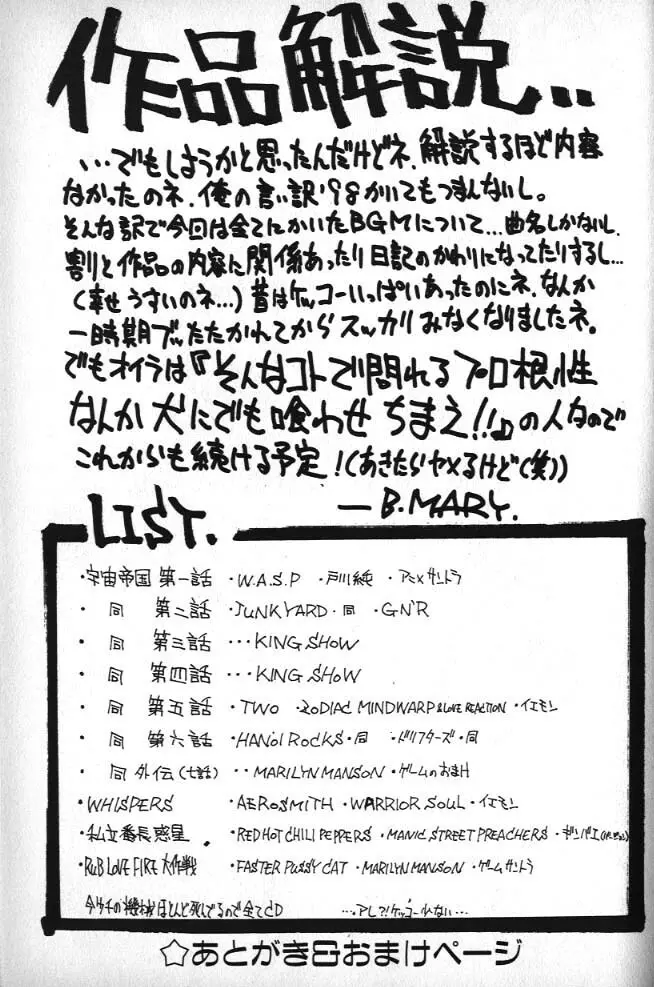 作品解説‥
…でもしようかと思ったんだけどネ、解説するほど内容
なかったのネ、俺の言い訳'98かいてもつまんないし。
そんな訳で今回は全てにかいたBGMについて…曲名しかないし、
割りと作品の内容に関係あったり日記のかわりになってたりするし…
(幸せうすいのネ…)昔はケッコーいっぱいあったのにネ、なんか
一時期ブッたたかれてからスッカリみなくなりましたネ。
でもオイラは『そんなコトで問れるプロ根性
なんか犬にでも喰わせちまえ!!』の人なので
これからも続ける予定!(あきたらヤメるけど(笑))
—B.MARY.
LIST.
・宇宙帝国 第一話 ・W.A.S.P ・戸川純 ・アニメサントラ
・ 同 第二話 ・JUNKYARD ・同 ・GN'R
・ 同 第三話 …KING SHOW
・ 同 第四話 …KING SHOW
・ 同 第五話 ・TWO ・ZODIAC MINDWARP & LOVE REACTION ・イエモン
・ 同 第六話 ・HANOI ROCKS ・同 ・ドリフターズ ・同
・ 同 外伝(七話) ‥MARILYN MANSON ・ゲームのおまけ
・WHISPERS ・AEROSMITH ・WARRIOR SOUL ・イエモン
・私立番長惑星 ・RED HOT CHILI PEPPERS ・MANIC STREET PREACHERS
・RUB LOVE FIRE 大作戦 ・FASTER PUSSY CAT ・MARILYN MANSON ・ゲームサントラ
今ウチの機械ほとんど死んでるので全てCD …アレ?!ケッコー少ない…
☆あとがき&おまけページ